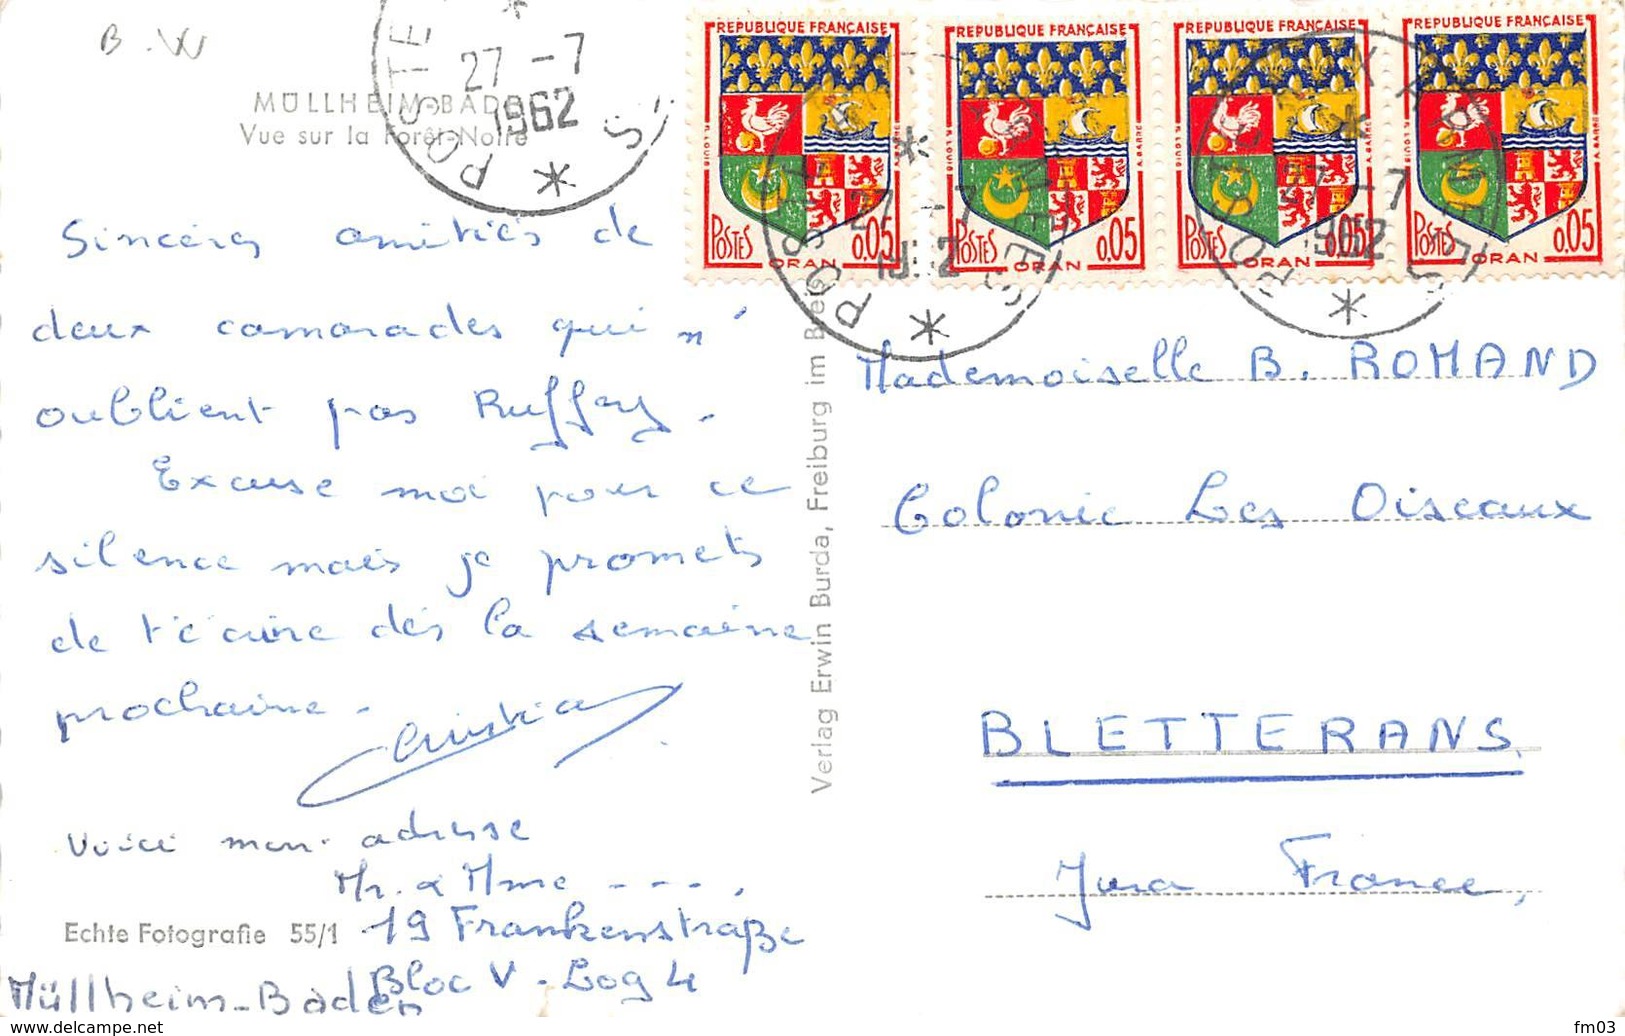 B.W
MÜLLHEIM-BADEN
Vue sur la Forêt-Noire
POSTE
27 -7
1962
POS
REPUBLIQUE FRANÇAISE
POSTES 0,05
ORAN
REPUBLIQUE FRANÇAISE
POSTES 0,05
ORAN
REPUBLIQUE FRANÇAISE
POSTES 0,05
ORAN
REPUBLIQUE FRANÇAISE
POSTES 0,05
ORAN
POSTE AUX ARMEES
27 -7
1962
Sincères amitiés de
deux camarades qui n'
oublient pas Ruffey.
Excuse moi pour ce
silence mais je promets
de t'écrire dès la semaine
prochaine.
Voici mon adresse
Mr. & Mme - - - .
19 Frankenstraße
Bloc V - Log 4
Müllheim-Baden
Echte Fotografie 55/1
Verlag Erwin Burda, Freiburg im Breis
Mademoiselle B. ROMAND
Colonie Les Oiseaux
BLETTERANS
Jura France,
fm03